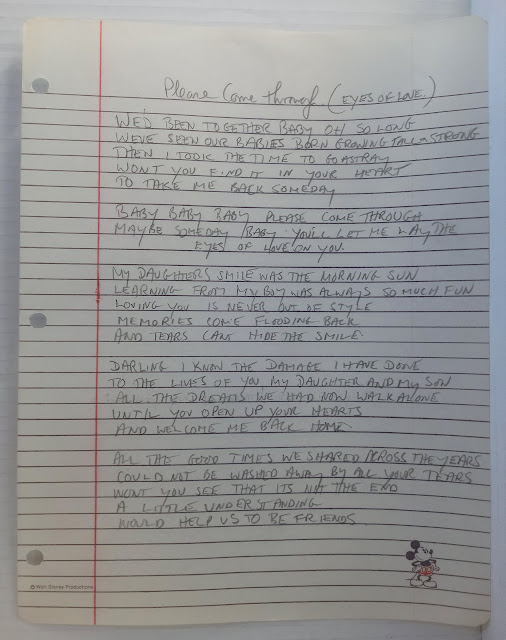 Please Come Through (EYES OF LOVE.)
WE'D BEEN TOGETHER BABY OH SO LONG
WEVE SEEN OUR BABIES BORN GROWING TALL N STRONG
THEN I TOOK THE TIME TO GO ASTRAY
WONT YOU FIND IT IN YOUR HEART
TO TAKE ME BACK SOMEDAY
BABY BABY BABY PLEASE COME THROUGH
MAYBE SOMEDAY BABY YOU'LL LET ME LAY THE
EYES OF LOVE ON YOU.
MY DAUGHTERS SMILE WAS THE MORNING SUN
LEARNING FROM MY BOY WAS ALWAYS SO MUCH FUN
LOVING YOU IS NEVER OUT OF STYLE
MEMORIES COME FLOODING BACK
AND TEARS CANT HIDE THE SMILE.
DARLING I KNOW THE DAMAGE I HAVE DONE
TO THE LIVES OF YOU, MY DAUGHTER AND MY SON
ALL THE DREAMS WE HAD NOW WALK ALONE
UNTIL YOU OPEN UP YOUR HEARTS
AND WELCOME ME BACK HOME
ALL THE GOOD TIMES WE SHARED ACROSS THE YEARS
COULD NOT BE WASHED AWAY BY ALL YOUR TEARS
WONT YOU SEE THAT ITS NOT THE END
A LITTLE UNDERSTANDING
WOULD HELP US TO BE FRIENDS
© Walt Disney Productions